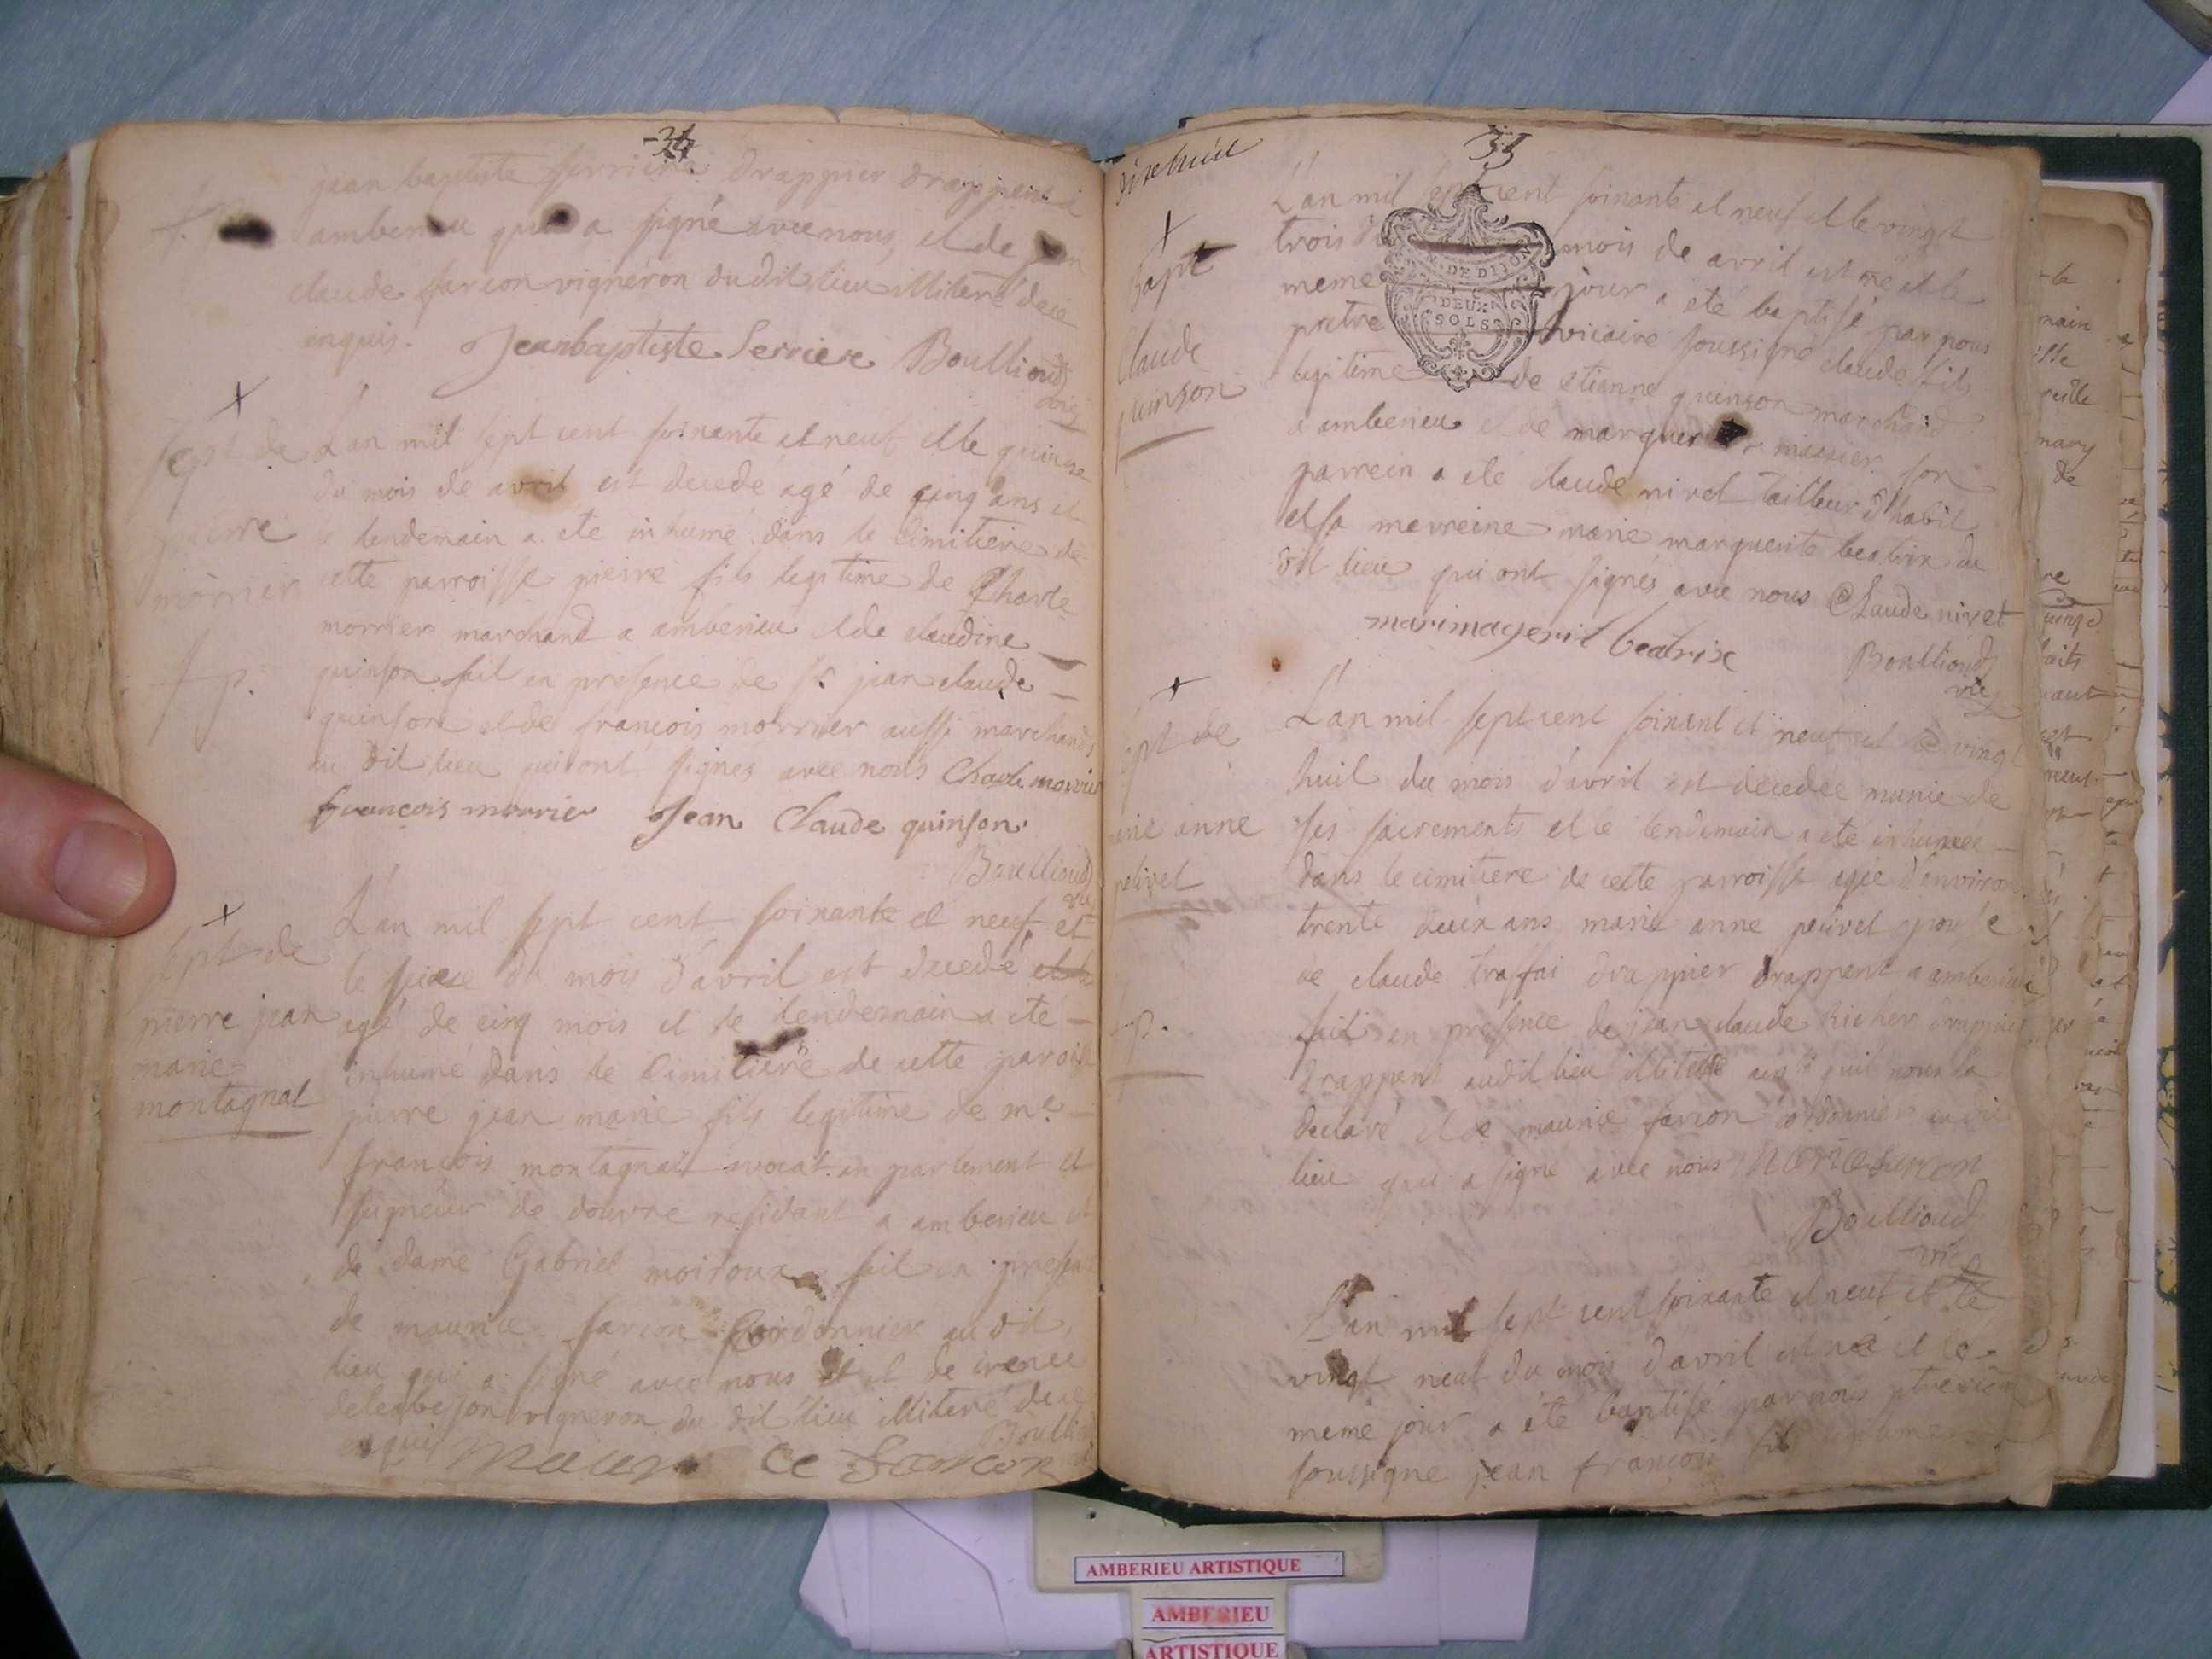 34
jean baptiste perriere drappier drappent a
amberieu qui a signé avec nous, et de jean
claude sarcon vigneron du dit lieu illiteré deue
enquis. Jean baptiste Perriere Boullioud
vic
Sept de
pierre
morrier
L'an mil sept cent soixante et neuf et le quinze
du mois de avril est decedé agé de cinq ans et
le lendemain a ete inhumé dans le cimitiere de
cette parroisse pierre fils legitime de Charle
morrier marchand a amberieu et de claudine
quinson fait en presence de sr. jean claude
quinson et de francois morrier aussi marchands
au dit lieu qui ont signés avec nous Charle morrier
francois morrier Jean Claude quinson
Boullioud
vic
Sept de
pierre jean
marie
montagnat
L'an mil sept cent soixante et neuf et
le seize du mois d'avril est decedé
agé de cinq mois et le lendemain a eté
inhumé dans le Cimitiere de cette paroisse
pierre jean marie fils legitime de me.
francois montagnat avocat en parlement et
seigneur de douvre residant a amberieu et
de dame Gabriel moiroux fait en presence
de maurice sarcon Cordonnier au dit
lieu qui a signé avec nous et de irenée
vigneron du dit lieu illiteré deue
enquis Maurice Sarcon Boullioud
35
dixhuit
Bapt
Claude
quinson
L'an mil sept cent soixante et neuf et le vingt
trois du mois de avril est né et le
meme jour a eté baptisé par nous
pretre vicaire soussigné claude fils
legitime de etienne quinson marchand
a amberieu et de marguerite massier son
parrein a eté claude nivet tailleur d'habit
et sa marreine marie marguerite beatrix du
dit lieu qui ont signés avec nous Claude nivet
marimagerit beatrix Boullioud
vic
N. DE DIJON
DEUX
SOLS
Sept de
marie anne
pelivet
L'an mil sept cent soixant et neuf et le vingt
huit du mois d'avril est decedée munie de
ses sacrements et le lendemain a eté inhumée
dans le cimitiere de cette parroisse agée d'environ
trente deux ans marie anne pelivet epouse
de claude traffai drappier drappent a amberieu
fait en presence de jean claude richer drappier
drappent audit lieu illiteré ainsi qu'il nous la
declaré et de maurice sarcon cordonnier au dit
lieu qui a signé avec nous
Boullioud
vic
L'an mil sept cent soixante et neuf et le
vingt neuf du mois d'avril est né et le
meme jour a été baptisé par nous ptre vic
soussigné jean francois fils
AMBERIEU ARTISTIQUE
AMBERIEU
ARTISTIQUE